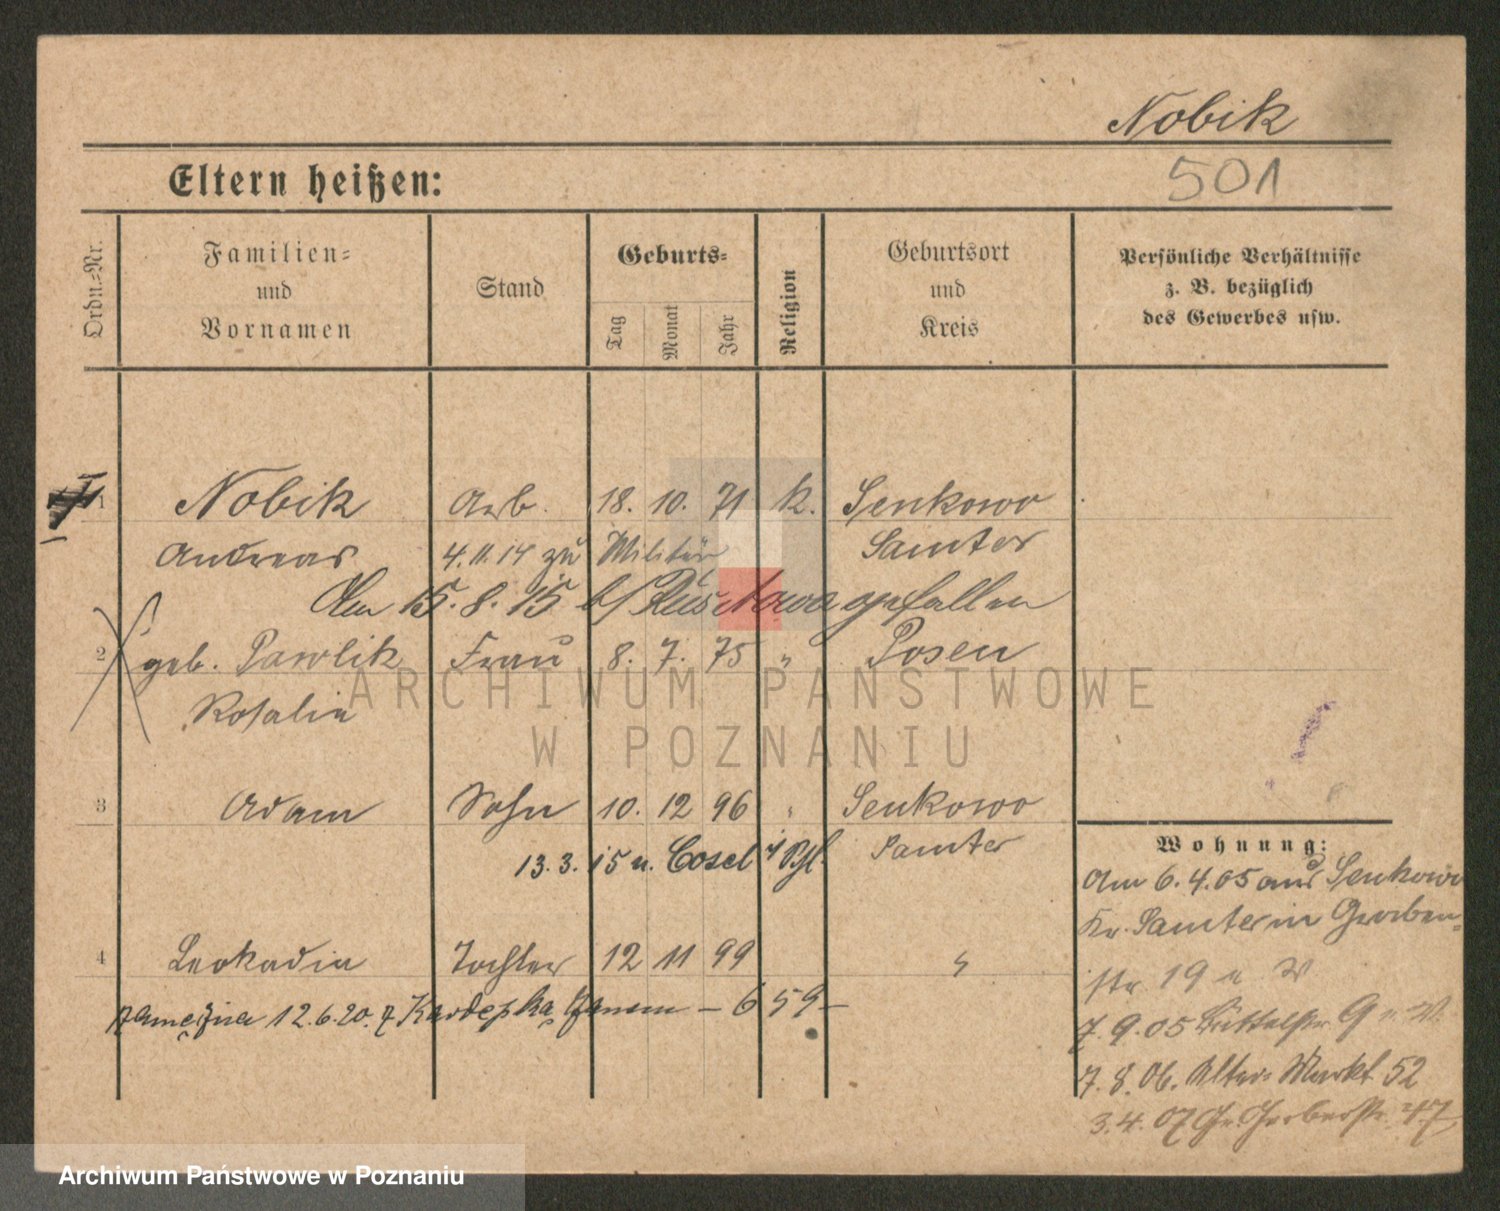 Nobik
501
Eltern heißen:
Ordn.-Nr.
Familien- und Vornamen
Stand
Geburts-
Tag
Monat
Jahr
Religion
Geburtsort und Kreis
Persönliche Verhältnisse z. B. bezüglich des Gewerbes usw.
1 Nobik Arb. 18. 10. 71 k. Senkowo
Andreas 4.11.14 zu Militär Samter
Am 15. 8. 15 b/ gefallen
2 geb. Pawlik Frau 8. 7. 75 " Posen
Rosalie
3 Adam Sohn 10. 12 96 " Senkowo
13. 3. 15 n. Cosel Samter
4 Leokadia Tochter 12 11 99 "
12.6.20. 659
Wohnung:
Am 6. 4. 05 aus Senkowo
Kr. Samter in Graben-
str. 19 u W
7. 9. 05 Büttelstr. 9 u. W.
7. 8. 06. Alter-Markt 52
3. 4. 07 Gr. Gerberstr. 47
ARCHIWUM PAŃSTWOWE
W POZNANIU
Archiwum Państwowe w Poznaniu